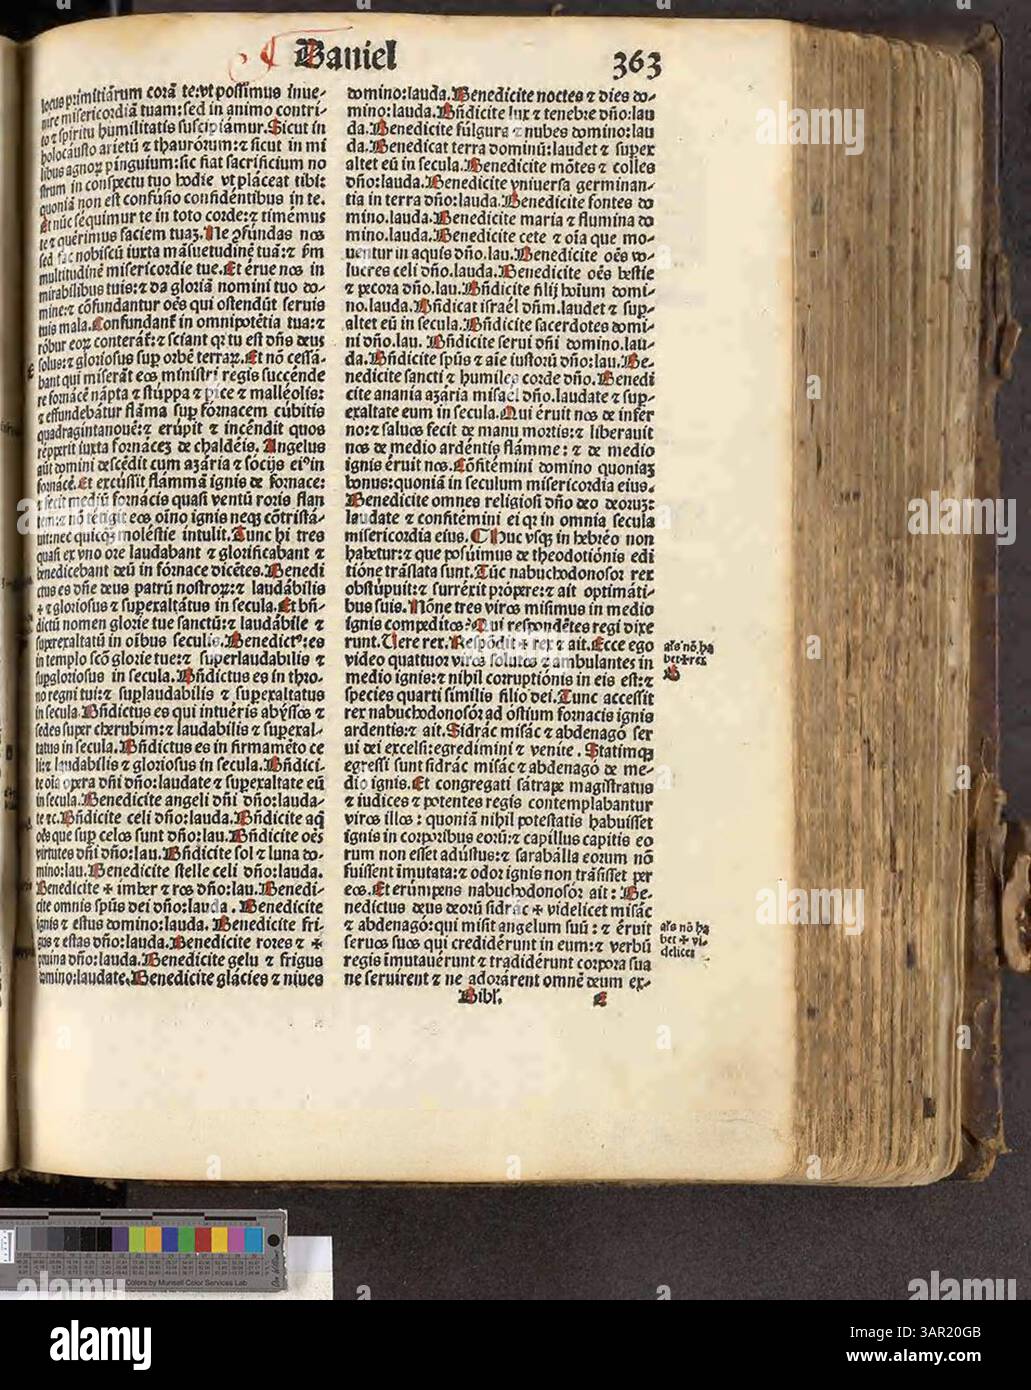 Daniel
363
locus primitiarum corā te:vt possimus inue-
nire misericordiā tuam:sed in animo contri-
to ⁊ spiritu humilitatis suscipiamur.Sicut in
holocausto arietū ⁊ thaurórum:⁊ sicut in mi
libus agnoꝝ pinguium:sic fiat sacrificium no
strum in conspectu tuo hodie vt pláceat tibi:
quoniā non est confusio confidéntibus in te.
Et nūc séquimur te in toto corde:⁊ timémus
te ⁊ quérimus faciem tuaꝫ.Ne ꝯfundas nos
sed fac nobiscū iuxta māsuetudinē tuā:⁊ ẜm
multitudinē misericordie tue.Et érue nos in
mirabilibus tuis:⁊ da gloriā nomini tuo do-
mine:⁊ cōfundantur oēs qui ostendūt seruis
tuis mala.Confundant̄ in omnipotētia tua:⁊
róbur eoꝝ conterat̄:⁊ sciant qꝛ tu est dn̄s deus
solus:⁊ gloriosus suꝑ orbē terraꝝ.Et nō cessā-
bant qui miserāt eos ministri regis succénde
re fornácē nápta ⁊ stúppa ⁊ pice ⁊ malléolis:
⁊ effundebátur flāma suꝑ fórnacem cúbitis
quadragintanouē:⁊ erúpit ⁊ incéndit quos
répperit iuxta fornácez de chaldéis. Angelus
aūt domini descēdit cum azária ⁊ sócijs eiꝰ in
fornácē.Et excússit flāmmā ignis de fornace:
⁊ fecit mediū fornácis quasi ventū roris flan
tem:⁊ nō tétigit eos oīno ignis neqꝫ cōtristá-
uit:nec quicqꝫ moléstie intulit.Tunc hi tres
quasi ex vno ore laudabant ⁊ glorificabant ⁊
benedicebant deū in fórnace dicētes.Benedi
ctus es dn̄e deus patrū nostroꝝ:⁊ laudábilis
+ ⁊ gloriosus ⁊ superexaltátus in secula.Et bn̄-
dictū nomen glorie tue sanctū:⁊ laudábile ⁊
superexaltatū in oībus seculis.Benedictꝰ:es
in templo scō glorie tue:⁊ superlaudabilis ⁊
suꝑgloriosus in secula.Bn̄dictus es in thro-
no regni tui:⁊ suꝑlaudabilis ⁊ suꝑexaltatus
in secula.Bn̄dictus es qui intuéris abýssos ⁊
sedes super cherubim:⁊ laudabilis ⁊ suꝑexal-
tatus in secula.Bn̄dictus es in firmamēto ce
li:⁊ laudabilis ⁊ gloriosus in secula.Bn̄dici-
te oīa opera dn̄i dn̄o:laudate ⁊ suꝑexaltate eū
in secula.Benedicite angeli dn̄i dn̄o:lauda-
te ⁊c.Bn̄dicite celi dn̄o:lauda.Bn̄dicite aq̄
oēs que suꝑ celos sunt dn̄o:lau.Bn̄dicite oēs
virtutes dn̄i dn̄o:lau.Bn̄dicite sol ⁊ luna do-
mino:lau.Benedicite stelle celi dn̄o:lauda.
Benedicite + imber ⁊ ros dn̄o:lau.Benedi-
cite omnis spūs dei dn̄o:lauda.Benedicite
ignis ⁊ estus domino:lauda. Benedicite fri-
gus ⁊ estas dn̄o:lauda.Benedicite rores ⁊ +
pruina dn̄o:lauda.Benedicite gelu ⁊ frigus
domino:laudate.Benedicite glácies ⁊ niues
domino:lauda.Benedicite noctes ⁊ dies do-
mino:lauda.Bn̄dicite lux ⁊ tenebre dn̄o:lau
da.Benedicite fúlgura ⁊ nubes domino:lau
da.Benedicat terra dominū:laudet ⁊ supex
altet eū in secula.Benedicite mōtes ⁊ colles
dn̄o:lauda.Benedicite vniuersa germinan-
tia in terra dn̄o:lauda.Benedicite fontes do
mino.lauda.Benedicite maria ⁊ flumina do
mino.lauda.Benedicite cete ⁊ oīa que mo-
uentur in aquis dn̄o.lau.Benedicite oēs vo-
lucres celi dn̄o.lauda.Benedicite oēs bestie
⁊ pecora dn̄o.lau.Bn̄dicite filij hoīum domi-
no.lauda.Bn̄dicat israél dn̄m.laudet ⁊ suꝑ-
altet eū in secula.Bn̄dicite sacerdotes domi-
ni dn̄o.lau. Bn̄dicite serui dn̄i domino.lau-
da.Bn̄dicite spūs ⁊ aīe iustorū dn̄o:lau.Be-
nedicite sancti ⁊ humiles corde dn̄o.Benedi
cite anania azária misael dn̄o.laudate ⁊ suꝑ-
exaltate eum in secula.Qui éruit nos de infer
no:⁊ saluos fecit de manu mortis:⁊ liberauit
nos de medio ardéntis flámme:⁊ de medio
ignis éruit nos.Cōfitémini domino quoniaꝫ
bonus:quoniā in seculum misericordia eius.
Benedicite omnes religiosi dn̄o deo deoruꝫ:
laudate ⁊ confitémini ei qꝛ in omnia secula
misericordia eius.Huc vsqꝫ in hebréo non
habetur:⁊ que posúimus de theodotiónis edi
tiōne trāslata sunt.Tūc nabuchodonosor rex
obstúpuit:⁊ surréxit própere:⁊ ait optimáti-
bus suis.Nōne tres viros misimus in medio
ignis compeditos?Qui respondētes regi dixe
runt.Vere rex.Respōdit + rex ⁊ ait.Ecce ego
video quattuor viros solutos ⁊ ambulantes in
medio ignis:⁊ nihil corruptiónis in eis est:⁊
species quarti similis filio dei.Tunc accessit
rex nabuchodonosóꝛ ad óstium fornacis ignis
ardentis:⁊ ait.Sidrác misác ⁊ abdenagó ser
ui dei excelsi:egredimini ⁊ venite.Statimqꝫ
egressi sunt sidrác misác ⁊ abdenagó de me-
dio ignis.Et congregati sátrape magistratus
⁊ iudices ⁊ potentes regis contemplabantur
viros illos:quoniā nihil potestatis habuisset
ignis in corporibus eorū:⁊ capillus capitis eo
rum non esset adústus:⁊ saraballa eorum nō
fuissent īmutata:⁊ odor ignis non trāsisset per
eos.Et erúmpens nabuchodonosór ait:Be-
nedictus deus deorū sidrác + videlicet misác
⁊ abdenagó:qui misit angelum suū:⁊ éruit
seruos suos qui credidérunt in eum:⁊ verbū
regis īmutauérunt ⁊ tradidérunt corpora sua
ne seruirent ⁊ ne adorárent omnē deum ex-
Bibl.
E
als nō ha
bet + rex
B
als nō ha
bet + vi-
delicet
Colors by Munsell Color Services Lab
alamy
Image ID: 3AR20GB
www.alamy.com